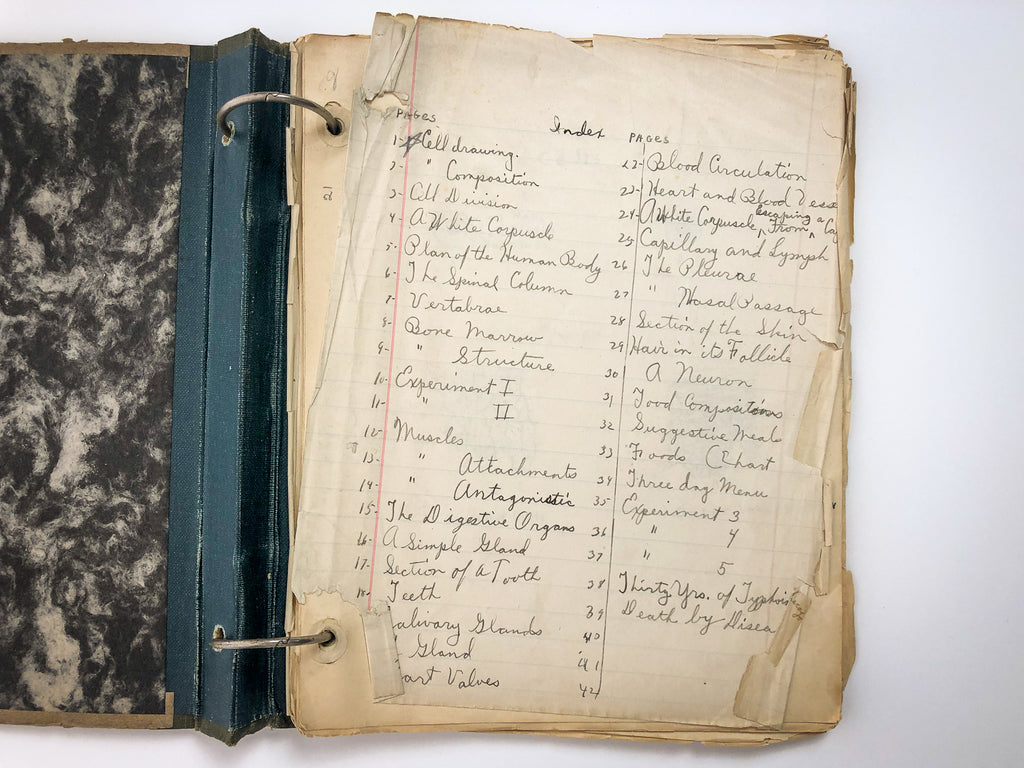 Index
PAGES
1- Cell drawing.
2- " Composition
3- Cell Division
4- A White Corpuscle
5- Plan of the Human Body
6- The Spinal Column
7- Vertabrae
8- Bone Marrow
9- " Structure
10- Experiment I
11- " II
12- Muscles
13- " Attachments
14- " Antagonistic
15- The Digestive Organs
16- A Simple Gland
17- Section of a Tooth
18- Teeth
alivary Glands
Gland
art Valves
PAGES
22- Blood Circulation
23- Heart and Blood Vesse
24- A White Corpuscle escaping From a Cap
25 Capillary and Lymph
26 The Pleurae
27 " Nasal Passage
28 Section of the Skin
29 Hair in its Follicle
30 A Neuron
31 Food Compositions
32 Suggestive Meals
33 Foods Chart
34 Three day Menu
35 Experiment 3
36 " 4
37 " 5
38 Thirty Yrs. of Typhoid
39 Death by Disea
40
41
42